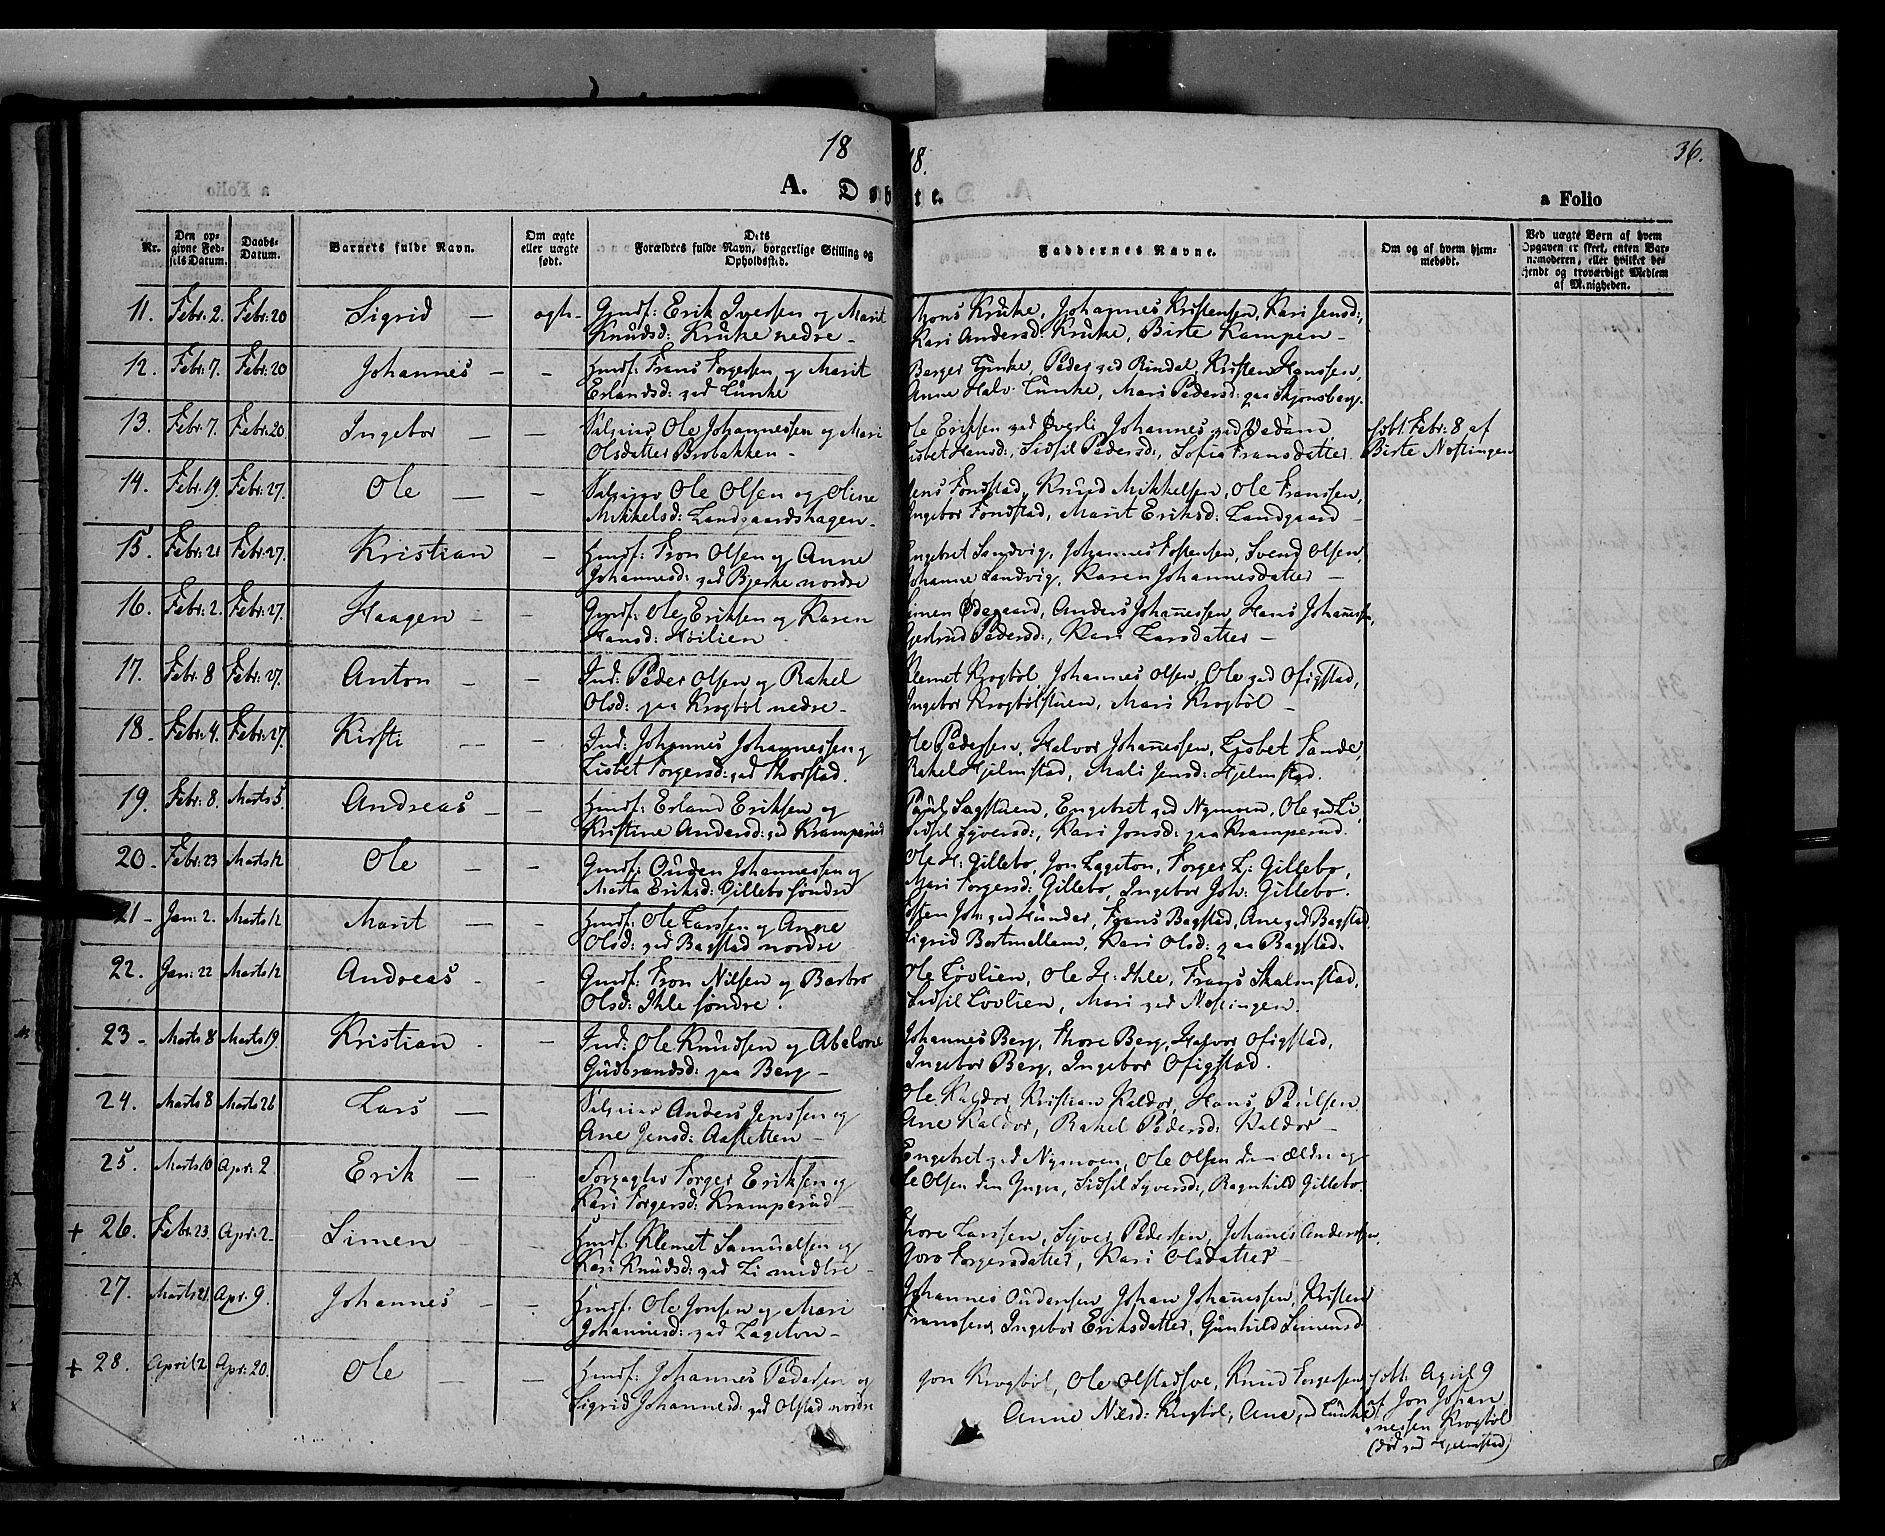 18
18.
36.
A. Døbte.
a Folio
Nr.
Den op-
givne Fød-
sels Datum.
Daabs-
Datum.
Barnets fulde Navn.
Om ægte
eller uægte
født.
Dets
Forældres fulde Navn, borgerlige Stilling og
Opholdssted.
Faddernes Navne.
Om og af hvem hjem-
medøbt.
Ved uægte Børn af hvem
Opgaven er skeet, enten Bar-
nemoderen, eller hvilket be-
kjendt og troværdigt Medlem
af Menigheden.
11. Febr: 2. Febr: 20 Sigrid — ægte — Gmdf: Erik Iversen og Marit Mons Kruke, Johannes Kristensen, Kari Jensd:,
Knudsd: Kruke nedre — Kari Andersd: Kruke, Birte Kampen —
12. Febr: 7. Febr: 20 Johannes — — Hmdf: Frans Torgersen og Marit Berger Lunke, Peder ved Rindal, Kristen Hanssen,
Erlandsd: ved Lunke Anne Halv: Lunke, Mari Pedersd: paa Skjønsberg.
13. Febr: 7. Febr: 20 Ingebor — — Ole Johannessen og Mari Ole Eriksen ved Øverli, Johannes ved Vedum, Febr: 8 af
Olsdatter Brobakken — Lisbet Hansd:, Sidsil Pedersd:, Sofia Fransdatter. Birte Nostingen
14. Febr: 19. Febr: 27. Ole — — Ole Olsen og Oline Jens Fonstad, Knud Mikkelsen, Ole Franssen,
Mikkelsd: Landgaardshagen — Ingebor Fonstad, Marit Eriksd: Landgaard —
15. Febr: 21 Febr: 27. Kristian — Hmdf: Tron Olsen og Anne Engebret Sandvig, Johannes Tostensen, Svend Olsen,
Johannesd: ved Bjerke nordre Johanne Sandvig, Karen Johannesdatter —
16. Febr: 2. Febr: 27. Haagen — — Gmdf: Ole Eriksen og Karen Simen Ødegaard, Anders Johannessen, Hans Johannessen,
Hansd: Høilien Gertrud Pedersd:, Kari Larsdatter —
17. Febr: 8 Febr: 27. Anton — — Ind: Peder Olsen og Rakel Klemet Krogbøl, Johannes Olsen, Ole ved Ofigstad,
Olsd: paa Krogbøl nedre — Ingebor Krogbølstuen, Mari Krogbøl —
18. Febr: 4. Febr: 27. Kirsti — — Ind: Johannes Johannessen og Ole Pedersen, Halvor Johannessen, Lisbet Sande,
Lisbet Torgersd: ved Thorstad. Rakel Hjelmstad, Mali Jensd: Hjelmstad.
19. Febr: 8. Marts 5. Andreas — — Hmdf: Erland Eriksen og Paul Sagstuen, Engebret ved Nymoen, Ole ved Li,
Kristine Andersd: ved Kramperud Sidsil Syversd:, Kari Jonsd: paa Kramperud.
20. Febr: 23 Marts 12 Ole — — Gmdf: Ouden Johannessen og Ole H: Gillebo, Jon Lageton, Torger L: Gillebo,
Marta Eriksd: Gillebo søndre Mari Torgersd: Gillebo, Ingebor Joh: Gillebo.
21 — Jan: 2. Marts 12 Marit — — Hmdf: Ole Larssen og Anne Tosten Joh: ved Hunder, Frans Bagstad, Ane ved Bagstad,
Olsd: ved Bagstad nordre Sigrid Bortmellem, Kari Olsd: paa Bagstad.
22. Jan: 22 Marts 12 Andreas — — Gmdf: Tron Nilsen og Barbro Ole Løvlien, Ole H: Ihle, Frans Skalmstad,
Olsd: Ihle søndre. Sidsil Løvlien, Mari ved Nostingen.
23 — Marts 8 Marts 19. Kristian — Ind: Ole Knudsen og Abelone Johannes Berg, Thore Berg, Halvor Ofigstad,
Gudbrandsd: paa Berg — Ingebor Berg, Ingebor Ofigstad.
24. Marts 8 Marts 26 Lars — Anders Jenssen og Ole Kaldor, Kristian Kaldor, Hans Paulsen
Ane Jensd: Aastetten — Ane Kaldor, Rakel Pedersd: Kaldor —
25. Marts 10 Apr: 2. Erik — — Forpagter Torger Eriksen og Engebret ved Nymoen, Ole Olsen den Ældre og
Kari Torgersd: Kramperud — Ole Olsen den Yngre, Sidsil Syversd:, Ragnhild Gillebo.
+ 26. Febr: 23. Apr: 2 — Simen — — Hmdf: Klemet Samuelsen og Thore Larssen, Syver Pedersen, Johanes Andersen,
Kari Knudsd: ved Li midtre — Goro Torgersdatter, Kari Olsdatter —
27. Marts 21. Apr: 9. Johannes — — Hmdf: Ole Jonsen og Mari Johannes Oudensen, Johan Johannessen, Kristen
Johannesd: ved Lageton — Franssen, Ingebor Eriksdatter, Gunhild Simensd
+ 28. April 2 Apr: 20. Ole — — Hmdf: Johannes Pedersen og Jon Krogbøl, Ole Olstadsve, Knud Torgersen, døbt April 9
Sigrid Johannesd: ved Olstad nordre Anne Nilsd: Krogbøl, Ane ved Lunke af Jon Johan
nessen Krogbøl
(død ved Hjelmstad)